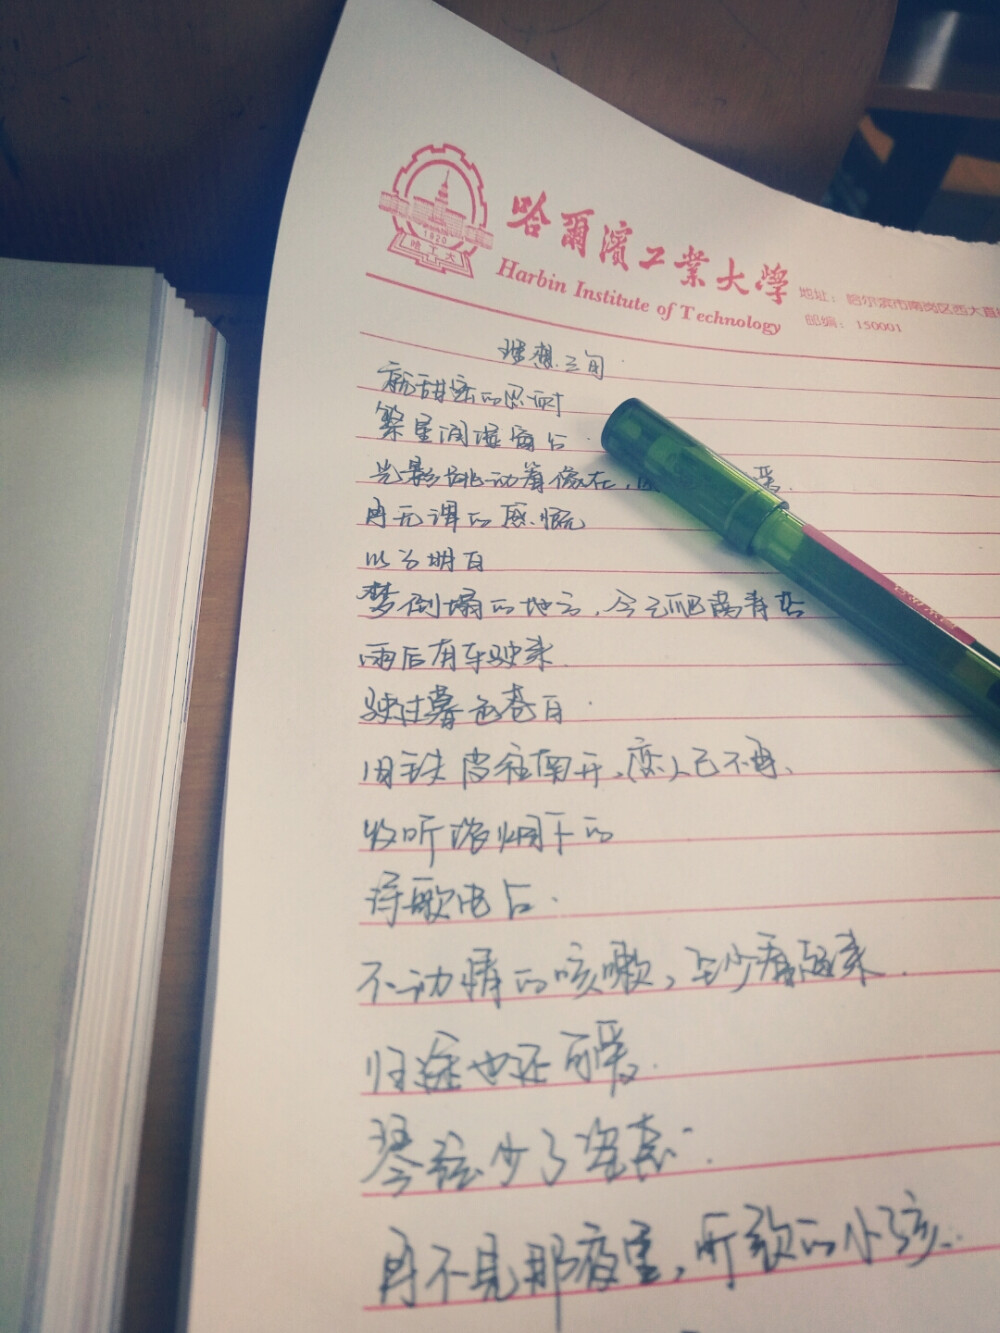 1920
哈工大
哈爾濱工業大學
Harbin Institute of Technology
地址：哈尔滨市南岗区西大直
邮编：150001
理想三旬
就甜蜜的忍耐
繁星润湿窗台
光影跳动着像在，
再无谓的感慨
以为明白
梦倒塌的地方，今已爬满青苔
雨后有车驶来
驶过暮色苍白
旧铁皮往南开，恋人已不再、
收听浓烟下的
诗歌电台.
不动情的咳嗽，至少看起来.
归途也还可爱.
琴弦少了姿态.
再不见那夜里，听歌的小孩.